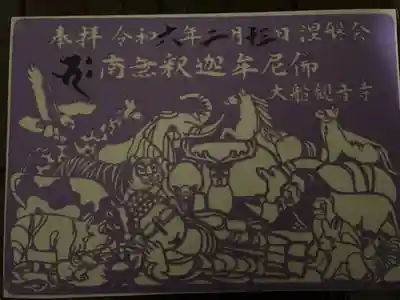 奉拝 令和六年二月十三日 涅槃会
南無釈迦牟尼佛
大船観音寺